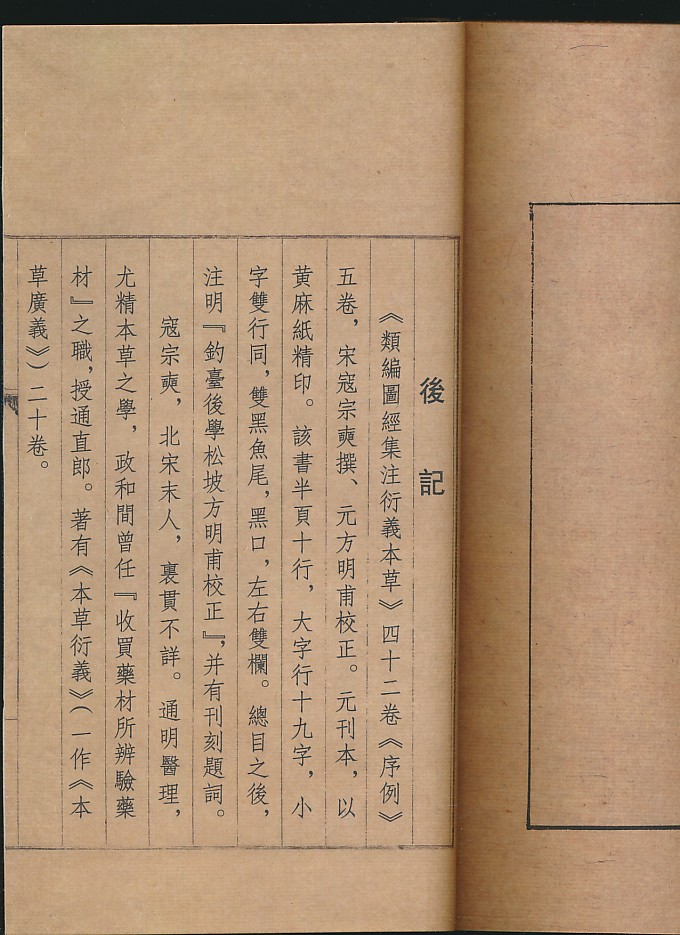 後記
《類編圖經集注衍義本草》四十二卷《序例》
五卷，宋寇宗奭撰、元方明甫校正。元刊本，以
黄麻紙精印。該書半頁十行，大字行十九字，小
字雙行同，雙黑魚尾，黑口，左右雙欄。總目之後，
注明『釣臺後學松坡方明甫校正』，并有刊刻題詞。
寇宗奭，北宋末人，裏貫不詳。通明醫理，
尤精本草之學，政和間曾任『收買藥材所辨驗藥
材』之職，授通直郎。著有《本草衍義》（一作《本
草廣義》）二十卷。